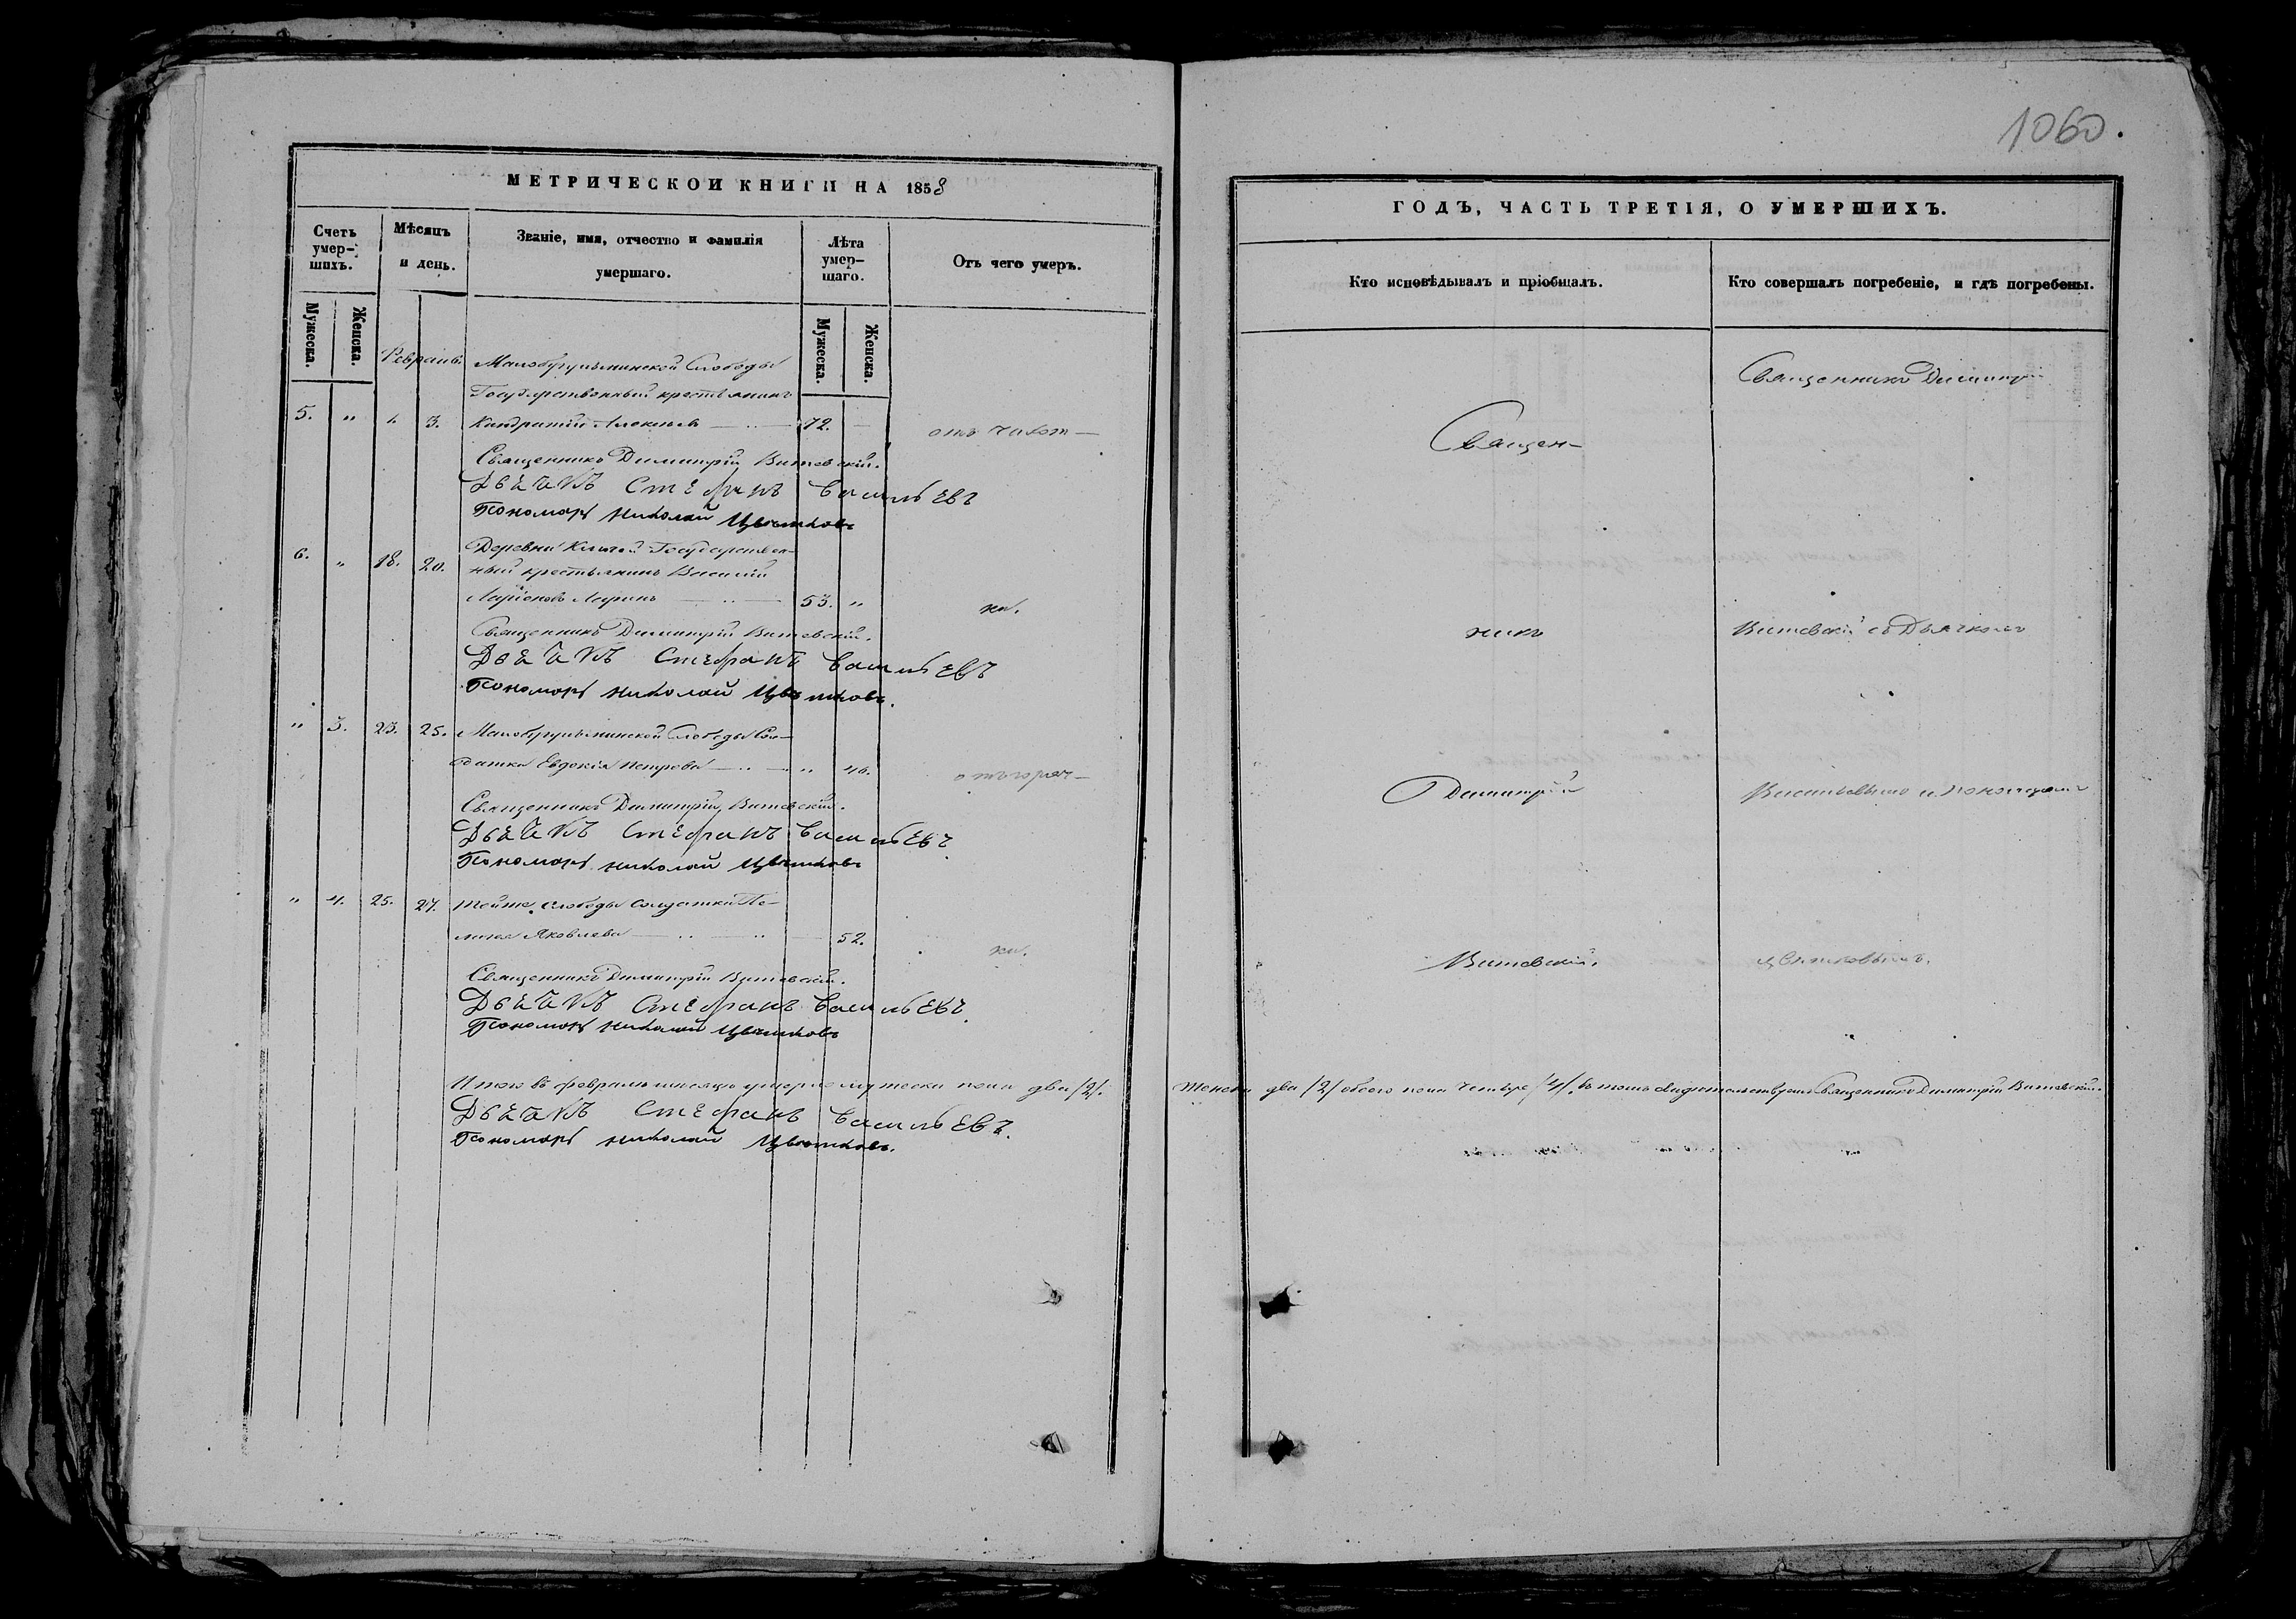 1060.
МЕТРИЧЕСКОЙ КНИГИ НА 1858
Счетъ умер-шихъ.
Мѣсяцъ и день.
Званіе, имя, отчество и фамилія умершаго.
Лѣта умер-шаго.
Отъ чего умеръ.
Мужеска.
Женска.
Мужеска.
Женска.
Февраль.
Слободы
Государственный крестьянинъ
5. " 1. 3. Кандратій Алексѣевъ 72. отъ чахот-
Священникъ Димитрій Витевскій.
Дьячокъ Стефанъ Васильевъ
Пономарь Николай Цвѣтковъ
6. " 18. 20. Деревни Государствен-
ный крестьянинъ Василій
Ларіоновъ Ларинъ 53. " ки.
Священникъ Димитрій Витевскій.
Дьячокъ Стефанъ Васильевъ
Пономарь Николай Цвѣтковъ.
" 3. 23. 25. Слободы Сол-
датка Евдокія Петрова " 46. отъ горяч-
Священникъ Димитрій Витевскій.
Дьячокъ Стефанъ Васильевъ
Пономарь Николай Цвѣтковъ
" 4. 25. 27. Тойже слободы солдатка Пе-
лагея Яковлева 52. ки.
Священникъ Димитрій Витевскій.
Дьячокъ Стефанъ Васильевъ
Пономарь Николай Цвѣтковъ
Итого въ февралѣ мѣсяцѣ умерло мужеска пола два /2/.
Дьячокъ Стефанъ Васильевъ.
Пономарь Николай Цвѣтковъ.
ГОДЪ, ЧАСТЬ ТРЕТІЯ, О УМЕРШИХЪ.
Кто исповѣдывалъ и пріобщалъ.
Кто совершалъ погребеніе, и гдѣ погребены.
Священникъ Димитрій
Священ-
никъ
Витевскій съ Дьячкомъ
Димитрій
Васильевымъ и пономаремъ
Витевскій.
Цвѣтковымъ.
женска два /2/ обоего пола четыре /4/. въ томъ свидѣтельствуемъ Священникъ Димитрій Витевскій.